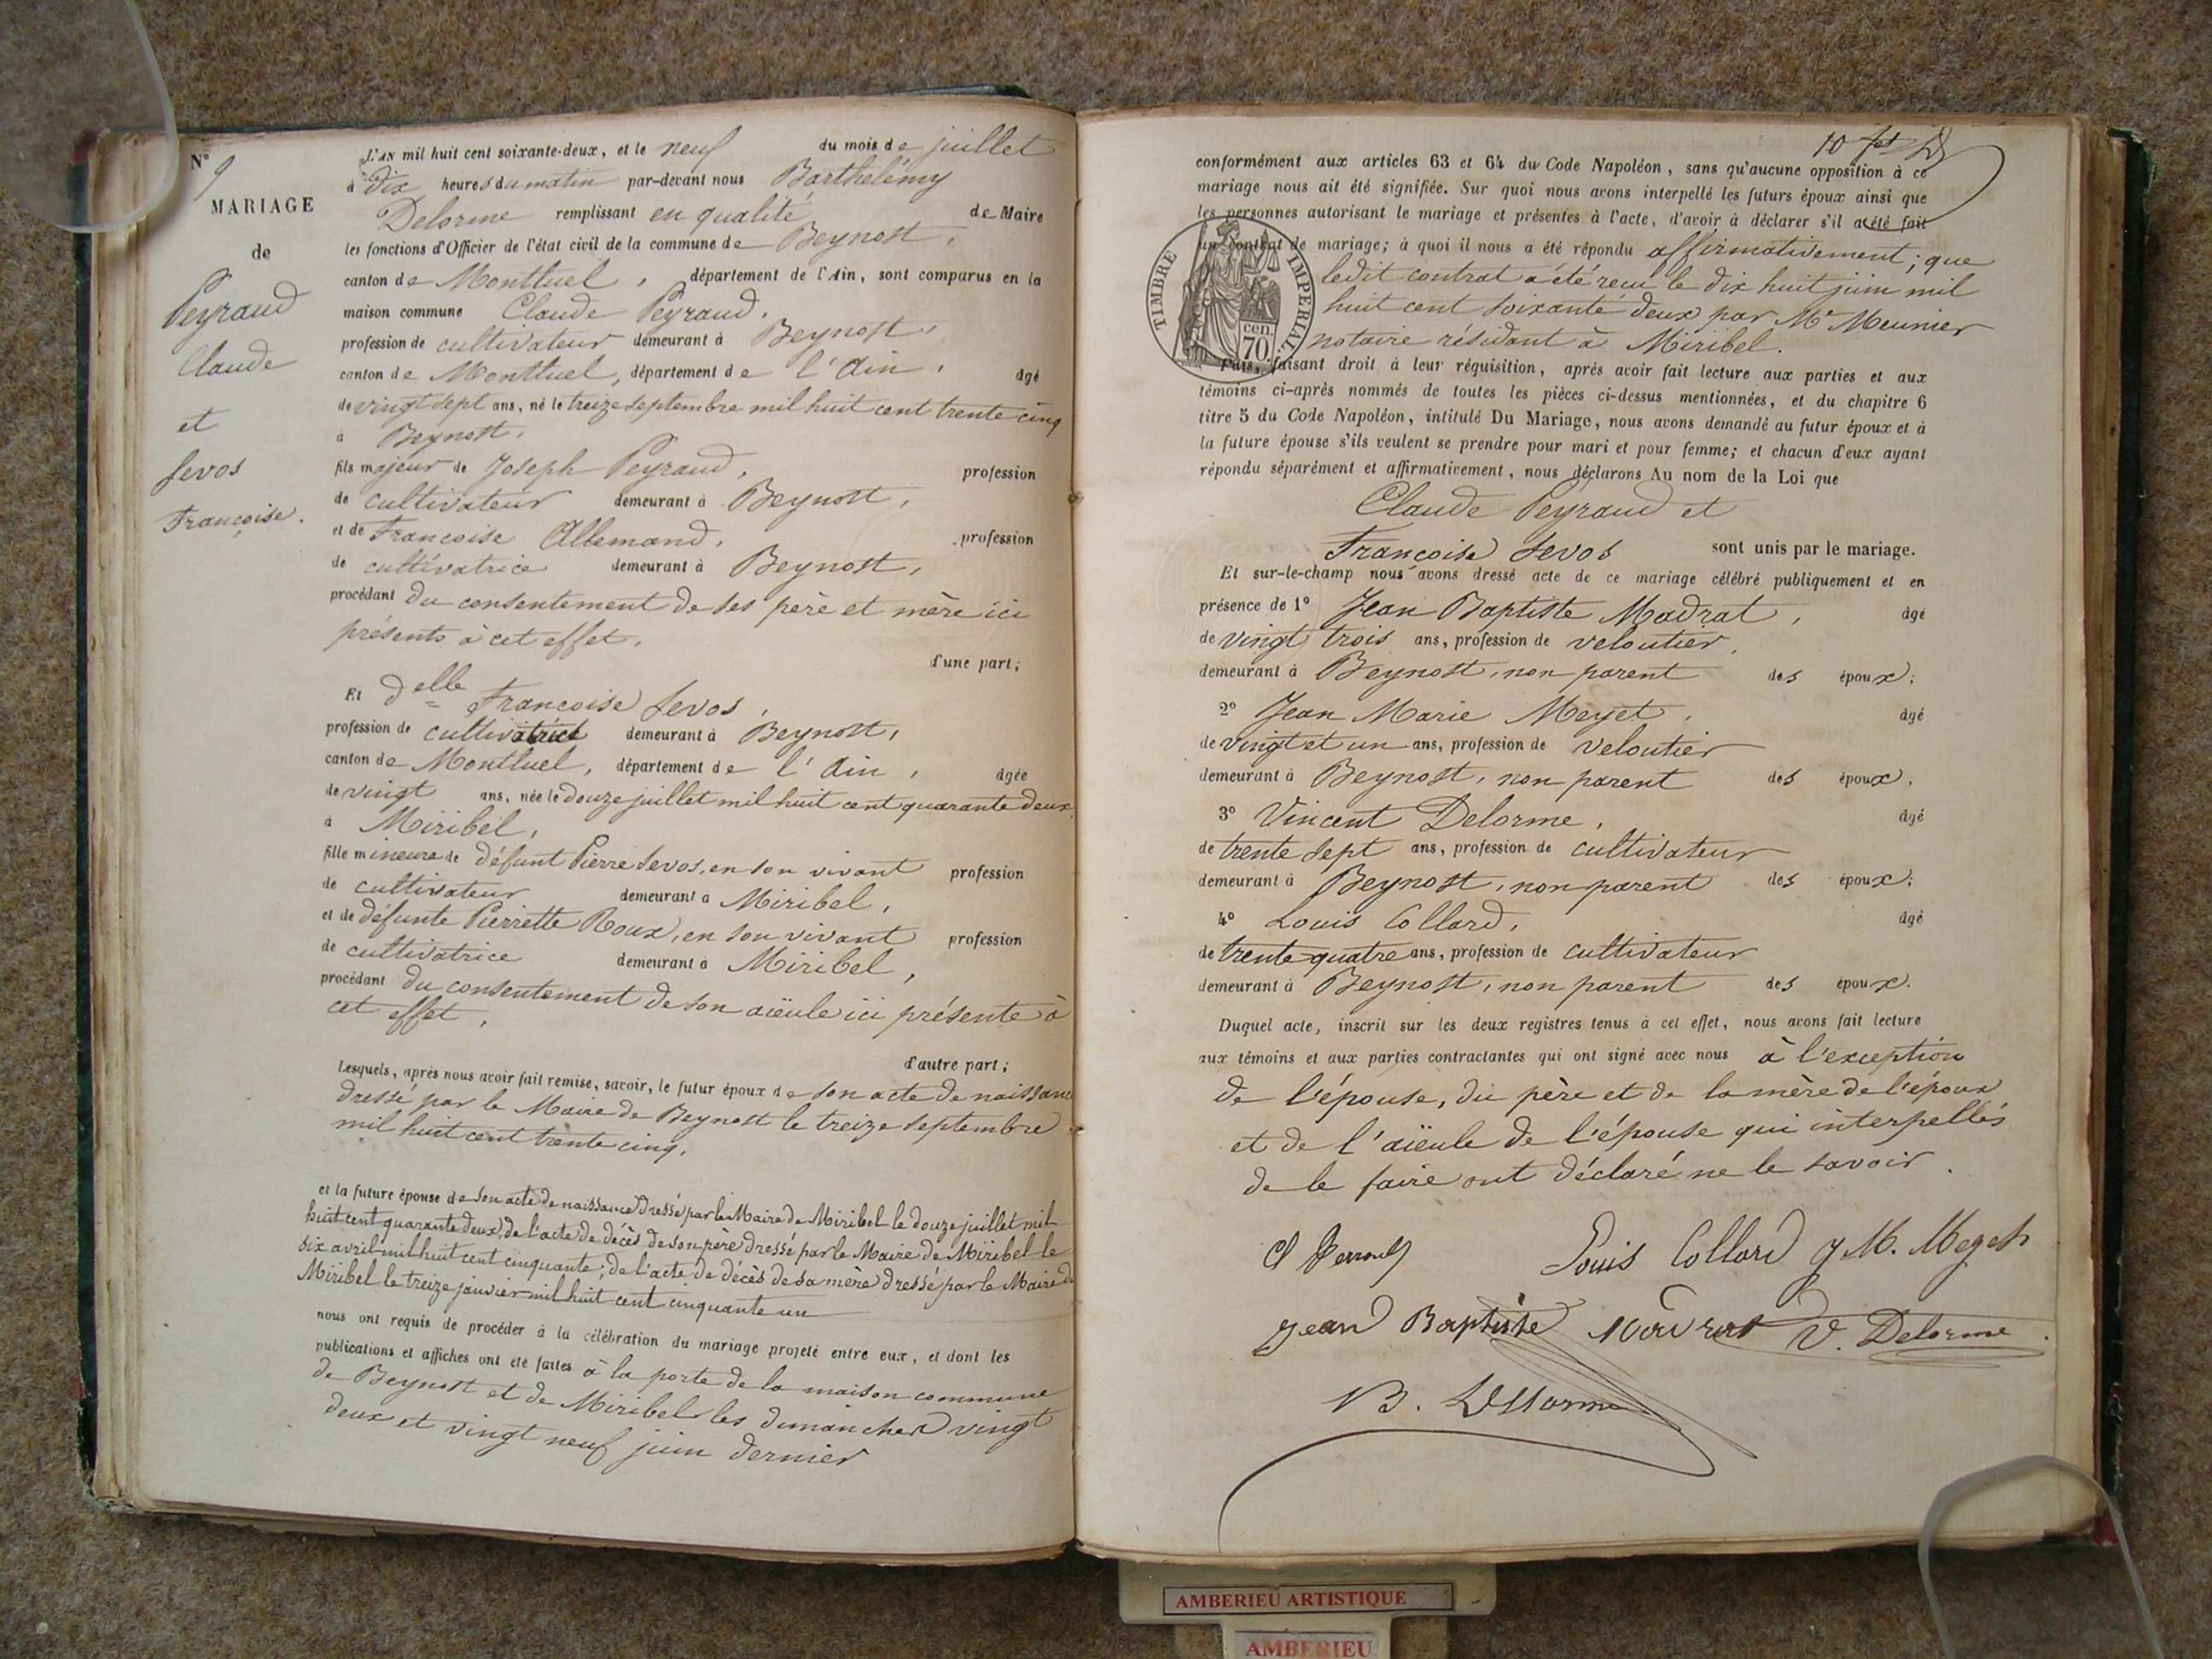 N° 9
MARIAGE
de
Peyraud
Claude
et
Sevos
Françoise.
L'AN mil huit cent soixante-deux, et le neuf du mois de juillet
à dix heures du matin par-devant nous Barthelémy
Delorme remplissant en qualité de Maire
les fonctions d'Officier de l'état civil de la commune de Beynost,
canton de Montluel, département de l'Ain, sont comparus en la
maison commune Claude Peyraud,
profession de cultivateur demeurant à Beynost,
canton de Montluel, département de l'Ain, âgé
de vingt sept ans, né le treize septembre mil huit cent trente cinq
à Beynost,
fils majeur de Joseph Peyraud, profession
de cultivateur demeurant à Beynost,
et de Francoise Allemand, profession
de cultivatrice demeurant à Beynost,
procédant du consentement de ses père et mère ici
présents à cet effet,
d'une part;
Et Delle Francoise Sevos,
profession de cultivatrice demeurant à Beynost,
canton de Montluel, département de l'Ain, âgée
de vingt ans, née le douze juillet mil huit cent quarante deux
à Miribel,
fille mineure de défunt Pierre Sevos, en son vivant profession
de cultivateur demeurant à Miribel,
et de défunte Pierrette Roux, en son vivant profession
de cultivatrice demeurant à Miribel,
procédant du consentement de son aïeule ici présente à
cet effet,
d'autre part;
Lesquels, après nous avoir fait remise, savoir, le futur époux de son acte de naissance
dressé par le Maire de Beynost le treize septembre
mil huit cent trente cinq,
et la future épouse de son acte de naissance dressé par le Maire de Miribel le douze juillet mil
huit cent quarante deux, de l'acte de décès de son père dressé par le Maire de Miribel le
six avril mil huit cent cinquante; de l'acte de décès de sa mère dressé par le Maire de
Miribel le treize janvier mil huit cent cinquante un
nous ont requis de procéder à la célébration du mariage projeté entre eux, et dont les
publications et affiches ont été faites à la porte de la maison commune
de Beynost et de Miribel les dimanches vingt
deux et vingt neuf juin dernier
conformément aux articles 63 et 64 du Code Napoléon, sans qu'aucune opposition à ce
mariage nous ait été signifiée. Sur quoi nous avons interpellé les futurs époux ainsi que
les personnes autorisant le mariage et présentes à l'acte, d'avoir à déclarer s'il a été fait
un contrat de mariage; à quoi il nous a été répondu affirmativement; que
ledit contrat a été reçu le dix huit juin mil
huit cent soixante deux par Me Meunier
notaire résidant à Miribel.
TIMBRE IMPERIAL
cen.
70
Puis, faisant droit à leur réquisition, après avoir fait lecture aux parties et aux
témoins ci-après nommés de toutes les pièces ci-dessus mentionnées, et du chapitre 6
titre 5 du Code Napoléon, intitulé Du Mariage, nous avons demandé au futur époux et à
la future épouse s'ils veulent se prendre pour mari et pour femme; et chacun d'eux ayant
répondu séparément et affirmativement, nous déclarons Au nom de la Loi que
Claude Peyraud et
Françoise Sevos sont unis par le mariage.
Et sur-le-champ nous avons dressé acte de ce mariage célébré publiquement et en
présence de 1° Jean Baptiste Madrat, âgé
de vingt trois ans, profession de veloutier,
demeurant à Beynost, non parent des époux;
2° Jean Marie Meyet, âgé
de vingt et un ans, profession de veloutier
demeurant à Beynost, non parent des époux,
3° Vincent Delorme, âgé
de trente sept ans, profession de cultivateur
demeurant à Beynost, non parent des époux;
4° Louis Collard, âgé
de trente quatre ans, profession de cultivateur
demeurant à Beynost, non parent des époux.
Duquel acte, inscrit sur les deux registres tenus à cet effet, nous avons fait lecture
aux témoins et aux parties contractantes qui ont signé avec nous à l'exception
de l'épouse, du père et de la mère de l'époux
et de l'aïeule de l'épouse qui interpellés
de le faire ont déclaré ne le savoir.
Louis Collard J M. Meyet
Jean Baptiste Madrat V. Delorme
B. Delorme
AMBERIEU ARTISTIQUE
AMBERIEU